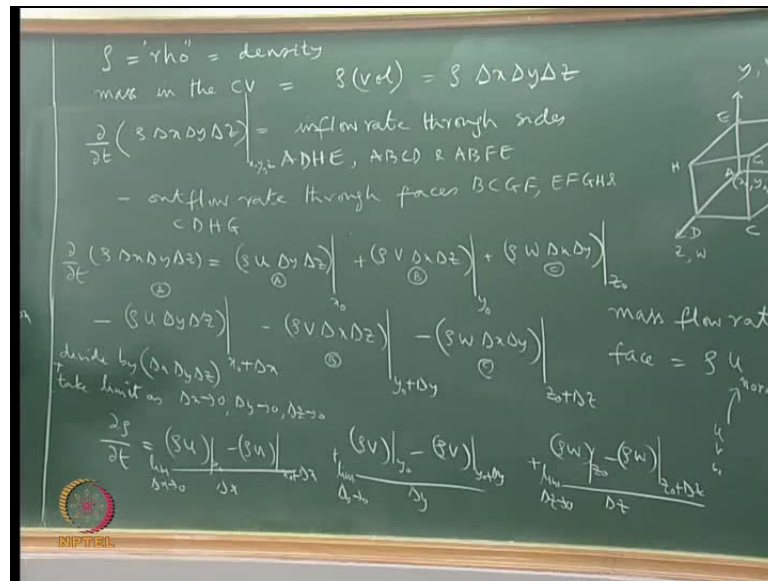 ρ = "rho" = density
mass in the CV = ρ(vol) = ρ Δx Δy Δz
∂/∂t (ρ Δx Δy Δz)|x,y,z = inflow rate through sides
ADHE, ABCD & ABFE
- outflow rate through faces BCGF, EFGH &
CDHG
∂/∂t (ρ Δx Δy Δz) = (ρ u Δy Δz)|x₀ + (ρ V Δx Δz)|y₀ + (ρ W Δx Δy)|z₀
A A B C
- (ρ u Δy Δz)|x₀+Δx - (ρ V Δx Δz)|y₀+Δy - (ρ W Δx Δy)|z₀+Δz
B C
divide by (Δx Δy Δz)
+ take limit as Δx→0, Δy→0, Δz→0
∂ρ/∂t = lim Δx→0 (ρu)|x₀ - (ρu)|x₀+Δx / Δx + lim Δy→0 (ρV)|y₀ - (ρV)|y₀+Δy / Δy + lim Δz→0 (ρW)|z₀ - (ρW)|z₀+Δz / Δz
y,
E
H
G
A
D
C
z, w
mass flow rat
face = ρ u nor
u
v
NPTEL